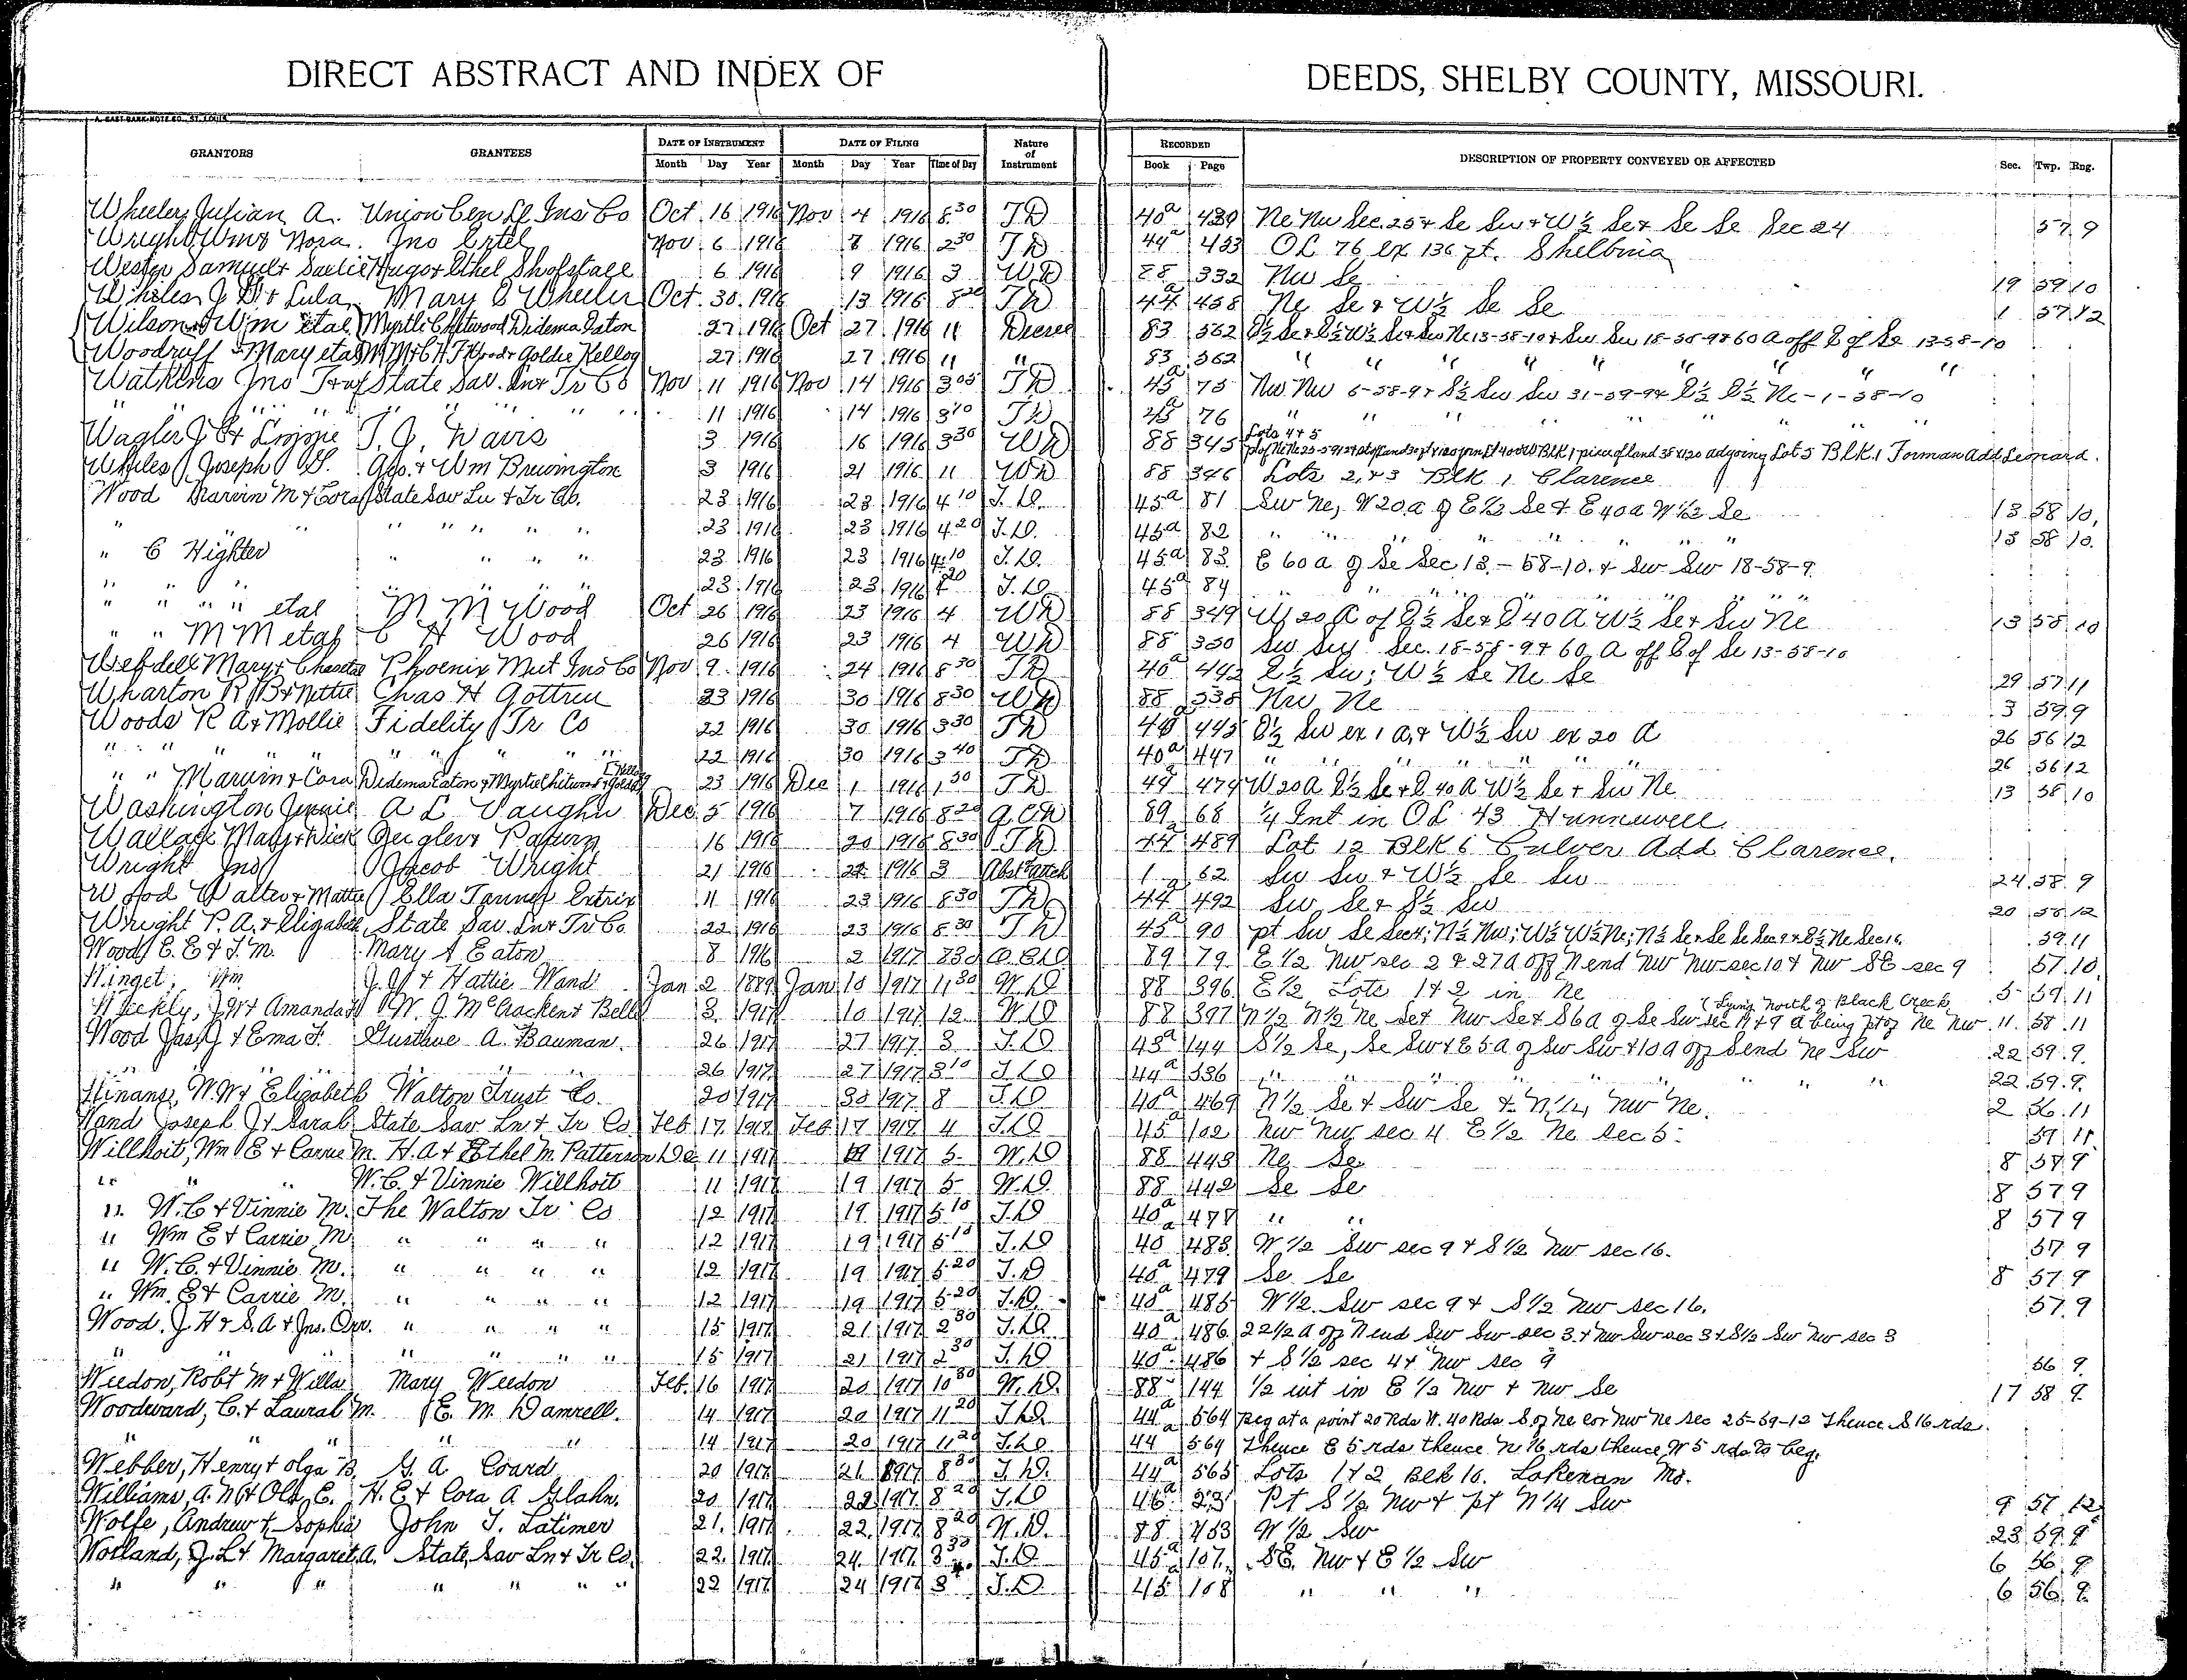 DIRECT ABSTRACT AND INDEX OF DEEDS, SHELBY COUNTY, MISSOURI.
GRANTORS GRANTEES DATE OF INSTRUMENT Month Day Year DATE OF FILING Month Day Year Time of Day Nature of Instrument RECORDED Book Page DESCRIPTION OF PROPERTY CONVEYED OR AFFECTED Sec. Twp. Rng.
Wheeler, Julian A. Union Cen Lf Ins Co Oct 16 1916 Nov 4 1916 8 30 TD 40a 439 Ne Nw Sec. 25 + Se Sw + W½ Se + Se Se Sec 24 57 9
Wright Wm + Nora Jno Ertel Nov 6 1916 8 1916 2 30 TD 44a 453 OL 76 ex 136 ft. Shelbina
Samuel + Hugo + Ethel Shofstall 6 1916 9 1916 3 WD 88 332 Nw Se 19 59 10
J D + Lula Mary E Wheeler Oct 30 1916 13 1916 8 20 TD 44a 458 Ne Se + W½ Se Se 1 57 12
Wilson Wm etal Myrtle Chitwood Didema Eaton 27 1916 Oct 27 1916 11 Decree 83 362 E½ Se + E½ W½ Se + Sw Ne 13-58-10 + Sw Sw 18-58-9 + 60 A off E of Se 13-58-10
Woodruff Mary etal M M + C H + J Wood + Goldie Kellog 27 1916 27 1916 11 " 83 362 " " " " " " "
Watkins Jno T + wf State Sav. Ln + Tr Co Nov 11 1916 Nov 14 1916 3 05 TD 45a 75 Nw Nw 6-58-9 + S½ Sw Sw 31-59-9 + E½ E½ Ne-1-58-10
" " " " " " " " 11 1916 14 1916 3 10 TD 45a 76 " " " " " "
Wagler J C + Lizzie T. J. Davis 3 1916 16 1916 3 30 WD 88 345 Lots 4 + 5 Blk 1 piece of land 38 x 120 adjoing Lot 5 Blk. 1 Forman Add Leonard.
Whiles Joseph W. Geo. + Wm Brewington 3 1916 21 1916 11 WD 88 346 Lots 2, + 3 Blk 1 Clarence
Wood Marvin M + Cora State Sav Ln + Tr Co. 23 1916 23 1916 4 10 T.D. 45a 81 Sw Ne, W 20 a of E½ Se + E 40 a W½ Se 13 58 10
" " " " " " " 23 1916 23 1916 4 20 T.D. 45a 82 " " " " " " 13 58 10
" C Highter " " " " 23 1916 23 1916 4 10 T.D. 45a 83 E 60 a of Se Sec. 13-58-10. + Sw Sw 18-58-9
" " " " " " " 23 1916 23 1916 4 20 T.D. 45a 84 " " " " " "
" " " " etal M M Wood Oct 26 1916 23 1916 4 WD 88 349 W 20 A of E½ Se + E 40 A W½ Se + Sw Ne 13 58 10
" " M M etal C H Wood 26 1916 23 1916 4 WD 88 350 Sw Sw Sec. 18-58-9 + 60 A off E of Se 13-58-10
Mary + Phoenix Mut Ins Co Nov 9 1916 24 1916 8 30 TD 40a 442 E½ Sw; W½ Se Ne Se 29 57 11
Wharton R B + Nettie Chas H Gottrin 23 1916 30 1916 8 30 WD 88 358 Nw Ne 3 59 9
Woods R A + Mollie Fidelity Tr Co 22 1916 30 1916 3 30 TD 40a 445 E½ Sw ex 1 a, + W½ Sw ex 20 a 26 56 12
" " " " " " " 22 1916 30 1916 3 40 TD 40a 447 " " " " " " 26 56 12
" " Marvin + Cora Didema Eaton + Myrtle Chitwood + Goldie Kellog 23 1916 Dec 1 1916 1 30 TD 44a 479 W 20 A E½ Se + E 40 A W½ Se + Sw Ne 13 58 10
Washington Jennie A L Vaughn Dec 5 1916 7 1916 8 20 Q.C.D 89 68 ¼ Int in OL 43 Hunnewell
Wallace Mary + Dick 16 1916 20 1916 8 30 TD 44a 489 Lot 12 Blk 6 Culver Add Clarence.
Wright Jno Jacob Wright 21 1916 22 1916 3 1 62 Sw Sw + W½ Se Sw 24 58 9
Wood Walter + Mattie Ella Tanner Extrix 11 1916 23 1916 8 30 TD 44a 492 Sw Se + S½ Sw 20 58 12
Wright P. A. + Elizabeth State Sav. Ln + Tr Co. 22 1916 23 1916 8 30 TD 45a 90 pt Sw Se Sec 4; N½ Nw; W½ W½ Ne; N½ Se + Se Se Sec 9 + E½ Ne Sec 16 59 11
Wood C. E + T. M. Mary A Eaton 8 1916 2 1917 8 30 Q.C.D. 89 79 E½ Nw sec 2 + 27 a off N end Nw Nw sec 10 + Nw SE sec 9 57 10
Winget, Wm J. W + Hattie Wand Jan 2 1889 Jan 10 1917 11 30 W.D 88 396 E½ Lots 1 + 2 in Ne 5 59 11
J W + Amanda W. J. McCracken + Belle 3 1917 10 1917 12 W.D 88 397 N½ N½ Ne Se + Nw Se + 86 a of Se Sw sec 11 + 9 a being pt of Ne Nw (Lying North of Black Creek 11 58 11
Wood Jas. J + Ema F. Gusthve A. Bauman. 26 1917 27 1917 3 T.D 43a 144 S½ Se, Se Sw + E 5 a of Sw Sw + 10 a off S end Ne Sw 22 59 9
" " 26 1917 27 1917 3 10 T.D 44a 536 " " " " " " 22 59 9
Winans, W. W + Elizabeth Walton Trust Co. 20 1917 30 1917 8 T.D 40a 469 N½ Se + Sw Se + N¼ Nw Ne. 2 56 11
Wand Joseph J + Sarah State Sav Ln + Tr Co Feb 17 1917 Feb 17 1917 4 T.D 45a 102 Nw Nw sec 4 E½ Ne Sec 5. 59 11
Willhoit, Wm E + Carrie M. H. A + Ethel M. Patterson Dec 11 1917 19 1917 5 W.D 88 443 Ne Se 8 57 9
" " W. C. + Vinnie Willhoit 11 1917 19 1917 5 W.D. 88 442 Se Se 8 57 9
" W. C + Vinnie M. The Walton Tr Co 12 1917 19 1917 5 10 T.D 40a 477 " " 8 57 9
" Wm E + Carrie M " " " " 12 1917 19 1917 5 10 T.D 40a 483 W½ Sw sec 9 + S½ Nw sec 16. 57 9
" W. C. + Vinnie M. " " " " 12 1917 19 1917 5 20 T.D 40a 479 Se Se 8 57 9
" Wm. E + Carrie M. " " " " 12 1917 19 1917 5 20 T.D. 40a 485 W½ Sw sec 9 + S½ Nw sec 16. 57 9
Wood. J. H + S. A + Jno. Orr. " " " " 15 1917 21 1917 2 30 T.D 40a 486 22½ a off N end Sw Sw sec 3 + Nw Sw sec 3 + S½ Sw Nw sec 3
" " " " " 15 1917 21 1917 2 30 T.D 40a 486 + S½ sec 4 + Nw sec 9 56 9
Weedon, Robt M + Willa Mary Weedon Feb. 16 1917 20 1917 10 30 W.D. 88 144 ½ int in E½ Nw + Nw Se 17 58 9
Woodward, C. + Laural M. E. M. Damrell. 14 1917 20 1917 11 20 T.D. 44a 564 Beg at a point 20 Rds W. 40 Rds S. of Ne cor Nw Ne sec 25-59-12 Thence S 16 rds.
" " " " " 14 1917 20 1917 11 20 T.D 44a 564 Thence E 5 rds thence N 16 rds thence W 5 rds to beg.
Webber, Henry + Olga B. G. A Coard 20 1917 21 1917 8 30 T.D. 44a 565 Lots 1 + 2 Blk 16. Lakenan Mo.
Williams, A. N + Ola E. H. E + Cora A Glahn. 20 1917 22 1917 8 20 T.D 46a 23 Pt S½ Nw + pt N¼ Sw 9 57 12
Wolfe, Andrew + Sophia John T. Latimer 21 1917 22 1917 8 20 W.D. 88 453 W½ Sw 23 59 9
Worland, J. L + Margaret A. State Sav Ln + Tr Co. 22 1917 24 1917 3 30 T.D 45a 107 SE Nw + E½ Sw 6 56 9
" " " " " " " 22 1917 24 1917 3 T.D 45 108 " " " 6 56 9